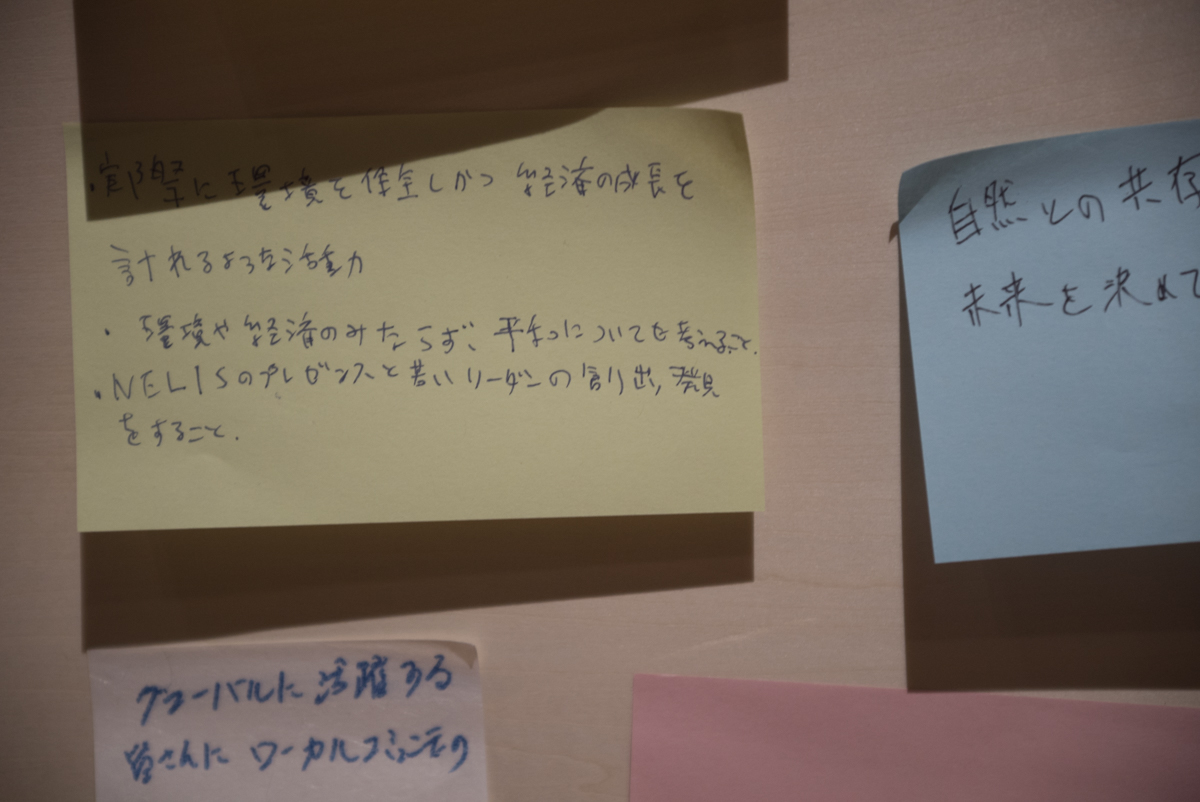 ・実際に環境を保全しかつ経済の成長を
計れるような活動力
・環境や経済のみならず、平和についても考えること.
・NELISのプレゼンスと若いリーダーの創り出し発見
をすること.
自然との共存
未来を決めて
グローバルに活躍する
皆さんにローカルコミュニティの